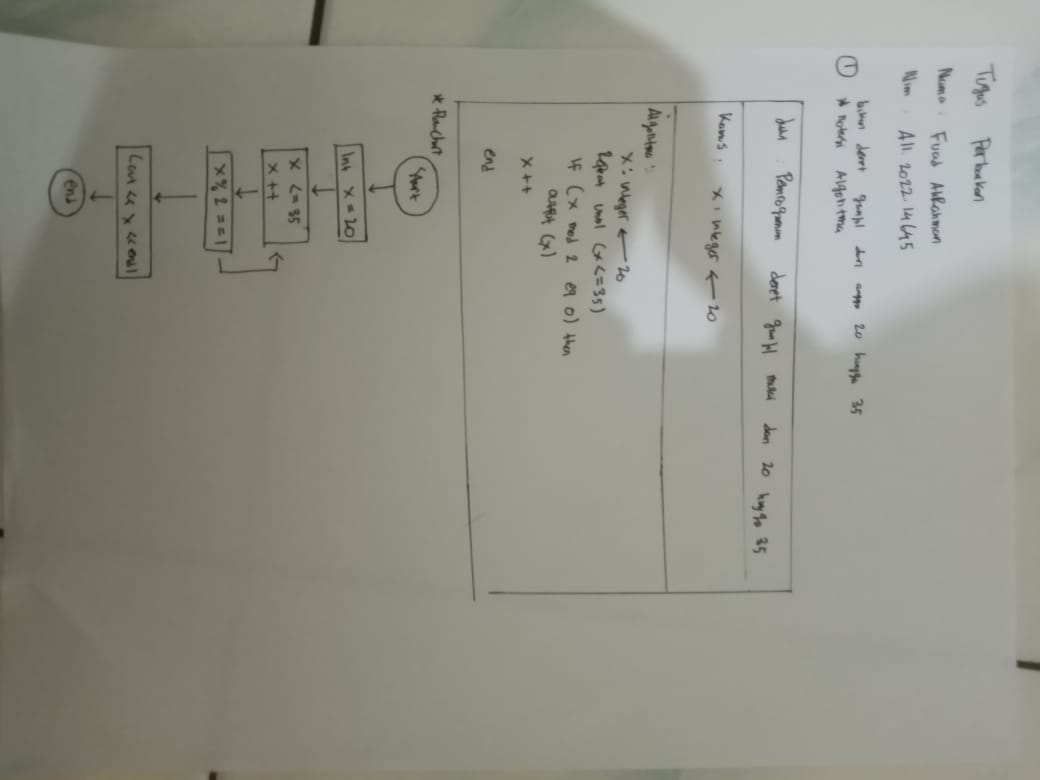 Tugus Perbaikan
Nama : Fuad AbRahman
Nim : A11. 2022. 14645
① bikin deret ganjil dari angga 20 hingga 35
* Notasi Algoritma
Judul : Pemrograman deret ganjil mulai dari 20 hingga 35
Kamus : x : integer ← 20
Algoritma :
x : integer ← 20
Repeat until (x <= 35)
if (x mod 2 eq 0) then
output (x)
x ++
end
* flowchart
Start
Int x = 20
x <= 35
x ++
x % 2 == 1
Cout << x << endl
end